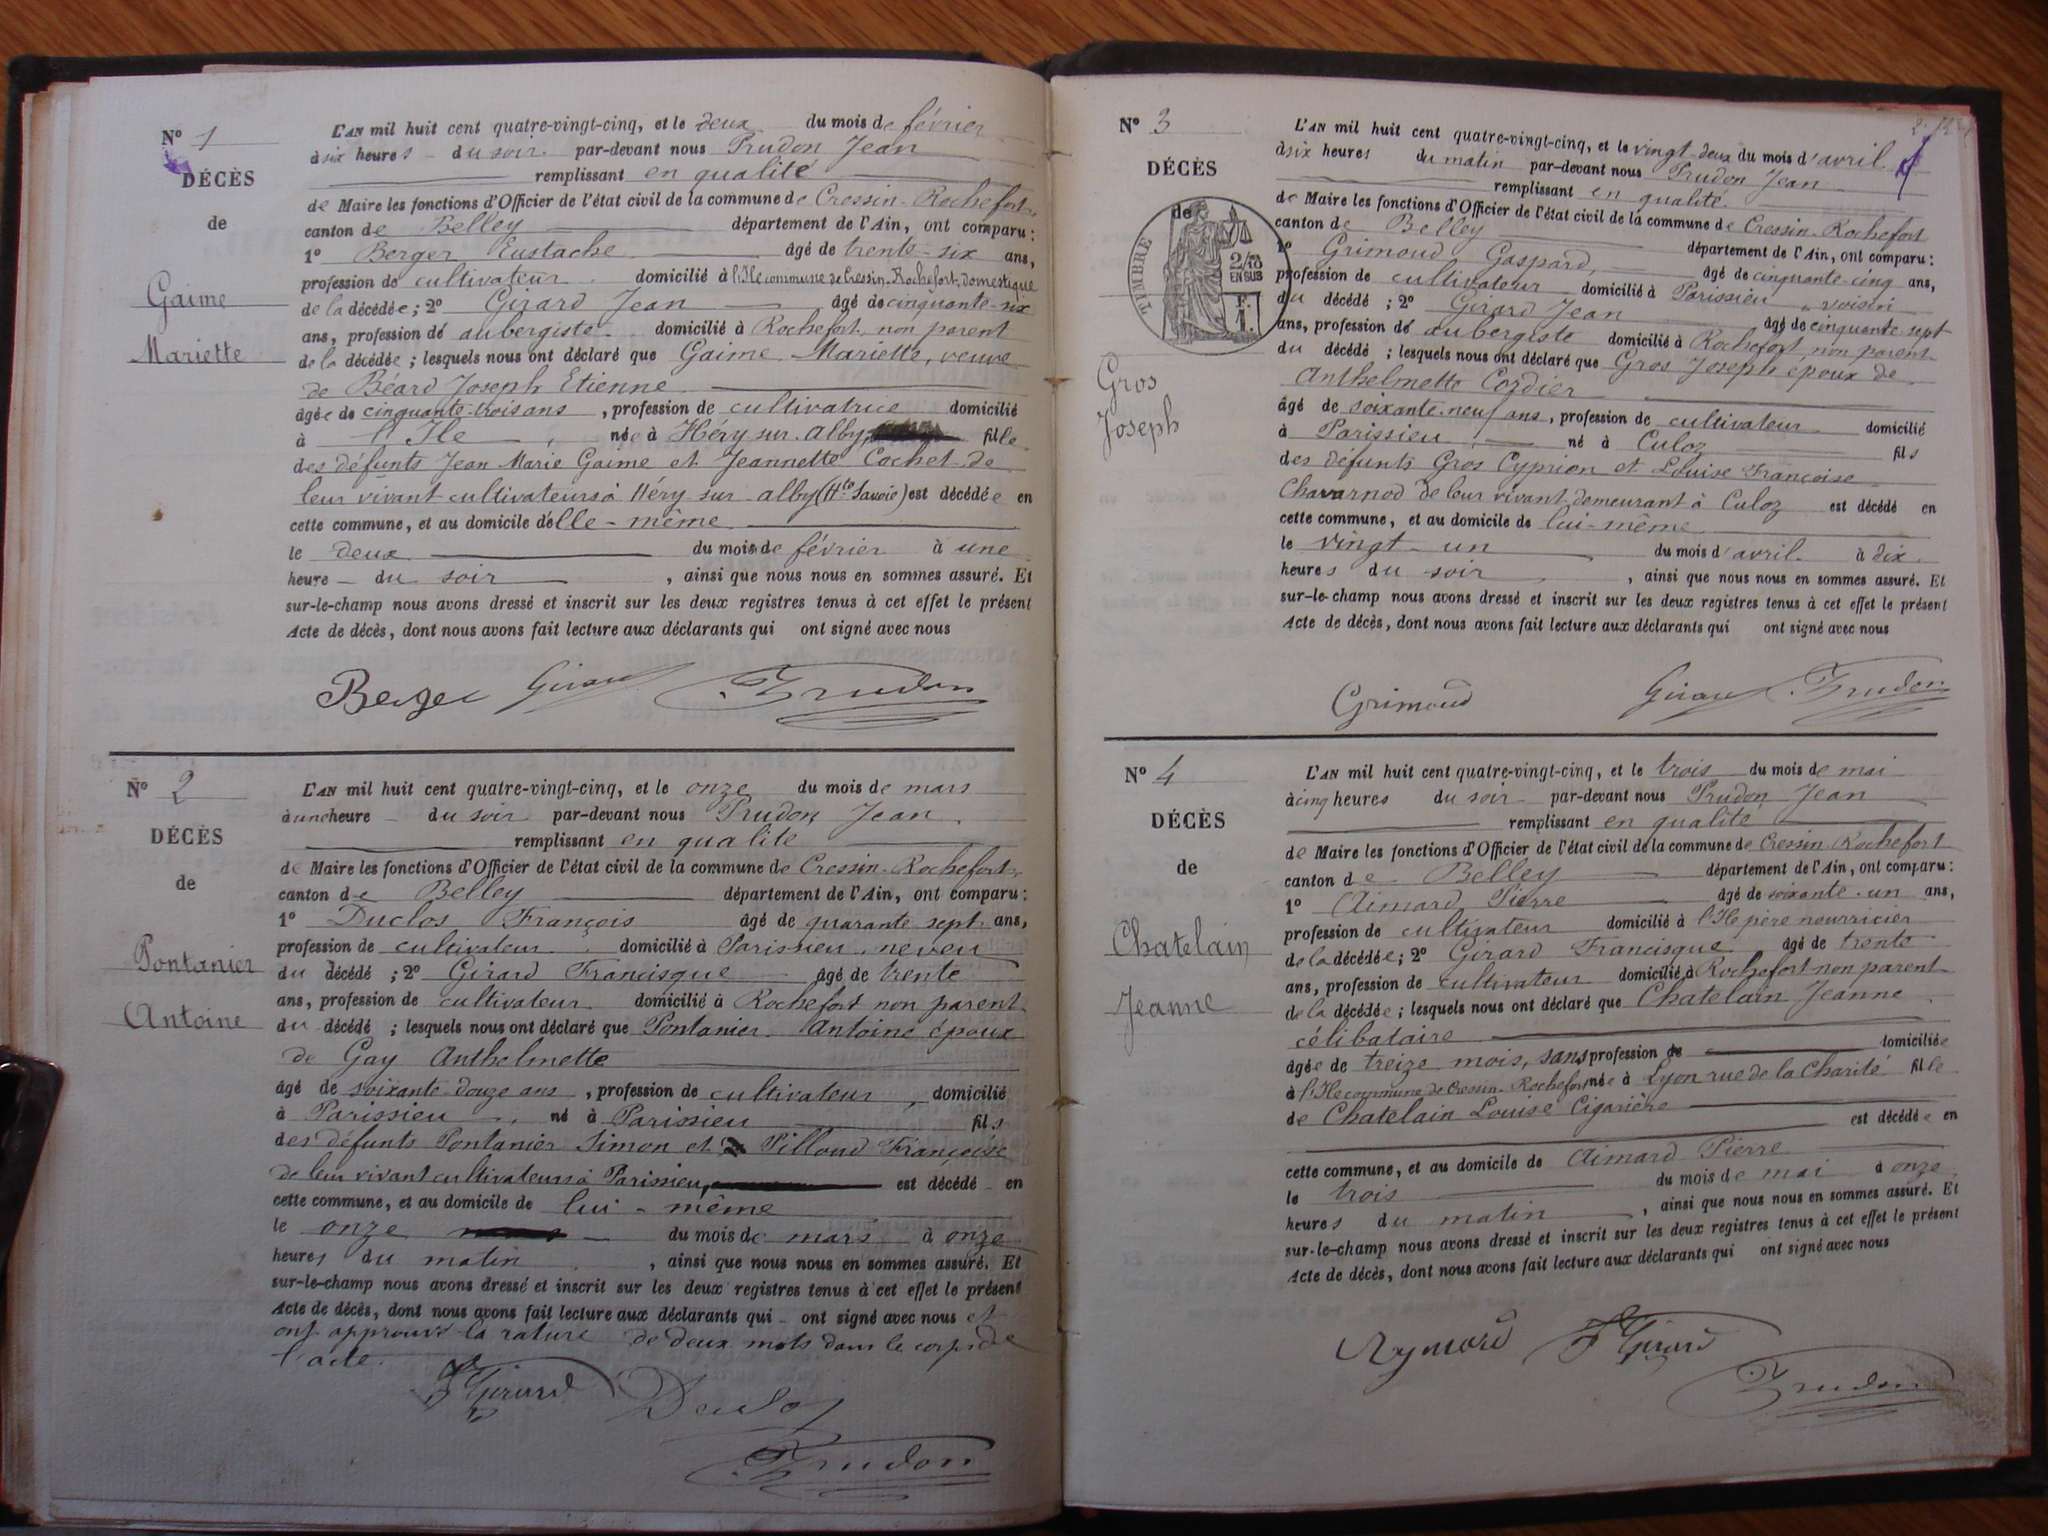 N° 1
DÉCÈS
de
Gaime
Mariette
L'AN mil huit cent quatre-vingt-cinq, et le deux du mois de février
à six heures du soir par-devant nous Prudon Jean
remplissant en qualité
de Maire les fonctions d'Officier de l'état civil de la commune de Cressin-Rochefort
canton de Belley département de l'Ain, ont comparu :
1° Berger Eustache âgé de trente-six ans,
profession de cultivateur domicilié à l'Ile commune de Cressin-Rochefort, domestique
de la décédée ; 2° Girard Jean âgé de cinquante-six
ans, profession de aubergiste domicilié à Rochefort non parent
de la décédée ; lesquels nous ont déclaré que Gaime Mariette, veuve
de Béard Joseph Etienne
âgée de cinquante-trois ans, profession de cultivatrice domicilié
à l'Ile, née à Héry-sur-Alby fille
des défunts Jean Marie Gaime et Jeannette Cochet de
leur vivant cultivateurs à Héry-sur-Alby (Hte Savoie) est décédée en
cette commune, et au domicile d'elle-même
le deux du mois de février à une
heure du soir, ainsi que nous nous en sommes assuré. Et
sur-le-champ nous avons dressé et inscrit sur les deux registres tenus à cet effet le présent
Acte de décès, dont nous avons fait lecture aux déclarants qui ont signé avec nous
Berger Girard Prudon
N° 2
DÉCÈS
de
Pontanier
Antoine
L'AN mil huit cent quatre-vingt-cinq, et le onze du mois de mars
à une heure du soir par-devant nous Prudon Jean
remplissant en qualité
de Maire les fonctions d'Officier de l'état civil de la commune de Cressin-Rochefort
canton de Belley département de l'Ain, ont comparu :
1° Duclos François âgé de quarante sept ans,
profession de cultivateur domicilié à Parissieu, neveu
du décédé ; 2° Girard Francisque âgé de trente
ans, profession de cultivateur domicilié à Rochefort non parent
du décédé ; lesquels nous ont déclaré que Pontanier Antoine époux
de Gay Anthelmette
âgé de soixante-douze ans, profession de cultivateur, domicilié
à Parissieu, né à Parissieu fils
des défunts Pontanier Simon et Pilloud Françoise
de leur vivant cultivateurs à Parissieu, est décédé en
cette commune, et au domicile de lui-même
le onze du mois de mars à onze
heures du matin, ainsi que nous nous en sommes assuré. Et
sur-le-champ nous avons dressé et inscrit sur les deux registres tenus à cet effet le présent
Acte de décès, dont nous avons fait lecture aux déclarants qui ont signé avec nous et
ont approuvé la rature de deux mots dans le corps de
l'acte.
F Girard Duclos
Prudon
N° 3
DÉCÈS
de
TIMBRE
2/10
EN SUS
Gros
Joseph
L'AN mil huit cent quatre-vingt-cinq, et le vingt-deux du mois d'avril
à six heures du matin par-devant nous Prudon Jean
remplissant en qualité
de Maire les fonctions d'Officier de l'état civil de la commune de Cressin-Rochefort
canton de Belley département de l'Ain, ont comparu :
1° Grimoud Gaspard, âgé de cinquante-cinq ans,
profession de cultivateur domicilié à Parissieu, voisin
du décédé ; 2° Girard Jean âgé de cinquante sept
ans, profession de aubergiste domicilié à Rochefort, non parent
du décédé ; lesquels nous ont déclaré que Gros Joseph époux de
Anthelmette Cordier
âgé de soixante-neuf ans, profession de cultivateur domicilié
à Parissieu, né à Culoz fils
des défunts Gros Cyprien et Louise Françoise
Chavarnod de leur vivant demeurant à Culoz est décédé en
cette commune, et au domicile de lui-même
le vingt-un du mois d'avril à dix
heures du soir, ainsi que nous nous en sommes assuré. Et
sur-le-champ nous avons dressé et inscrit sur les deux registres tenus à cet effet le présent
Acte de décès, dont nous avons fait lecture aux déclarants qui ont signé avec nous
Grimoud Girard Prudon
N° 4
DÉCÈS
de
Chatelain
Jeanne
L'AN mil huit cent quatre-vingt-cinq, et le trois du mois de mai
à cinq heures du soir par-devant nous Prudon Jean
remplissant en qualité
de Maire les fonctions d'Officier de l'état civil de la commune de Cressin-Rochefort
canton de Belley département de l'Ain, ont comparu :
1° Aimard Pierre âgé de soixante-un ans,
profession de cultivateur domicilié à l'Ile père nourricier
de la décédée ; 2° Girard Francisque âgé de trente
ans, profession de cultivateur domicilié à Rochefort non parent
de la décédée ; lesquels nous ont déclaré que Chatelain Jeanne
célibataire
âgée de treize mois, sans profession de domiciliée
à l'Ile commune de Cressin-Rochefort, née à Lyon rue de la Charité fille
de Chatelain Louise Cigarière
est décédée en
cette commune, et au domicile de Aimard Pierre
le trois du mois de mai à onze
heures du matin, ainsi que nous nous en sommes assuré. Et
sur-le-champ nous avons dressé et inscrit sur les deux registres tenus à cet effet le présent
Acte de décès, dont nous avons fait lecture aux déclarants qui ont signé avec nous
Aymard F Girard
Prudon